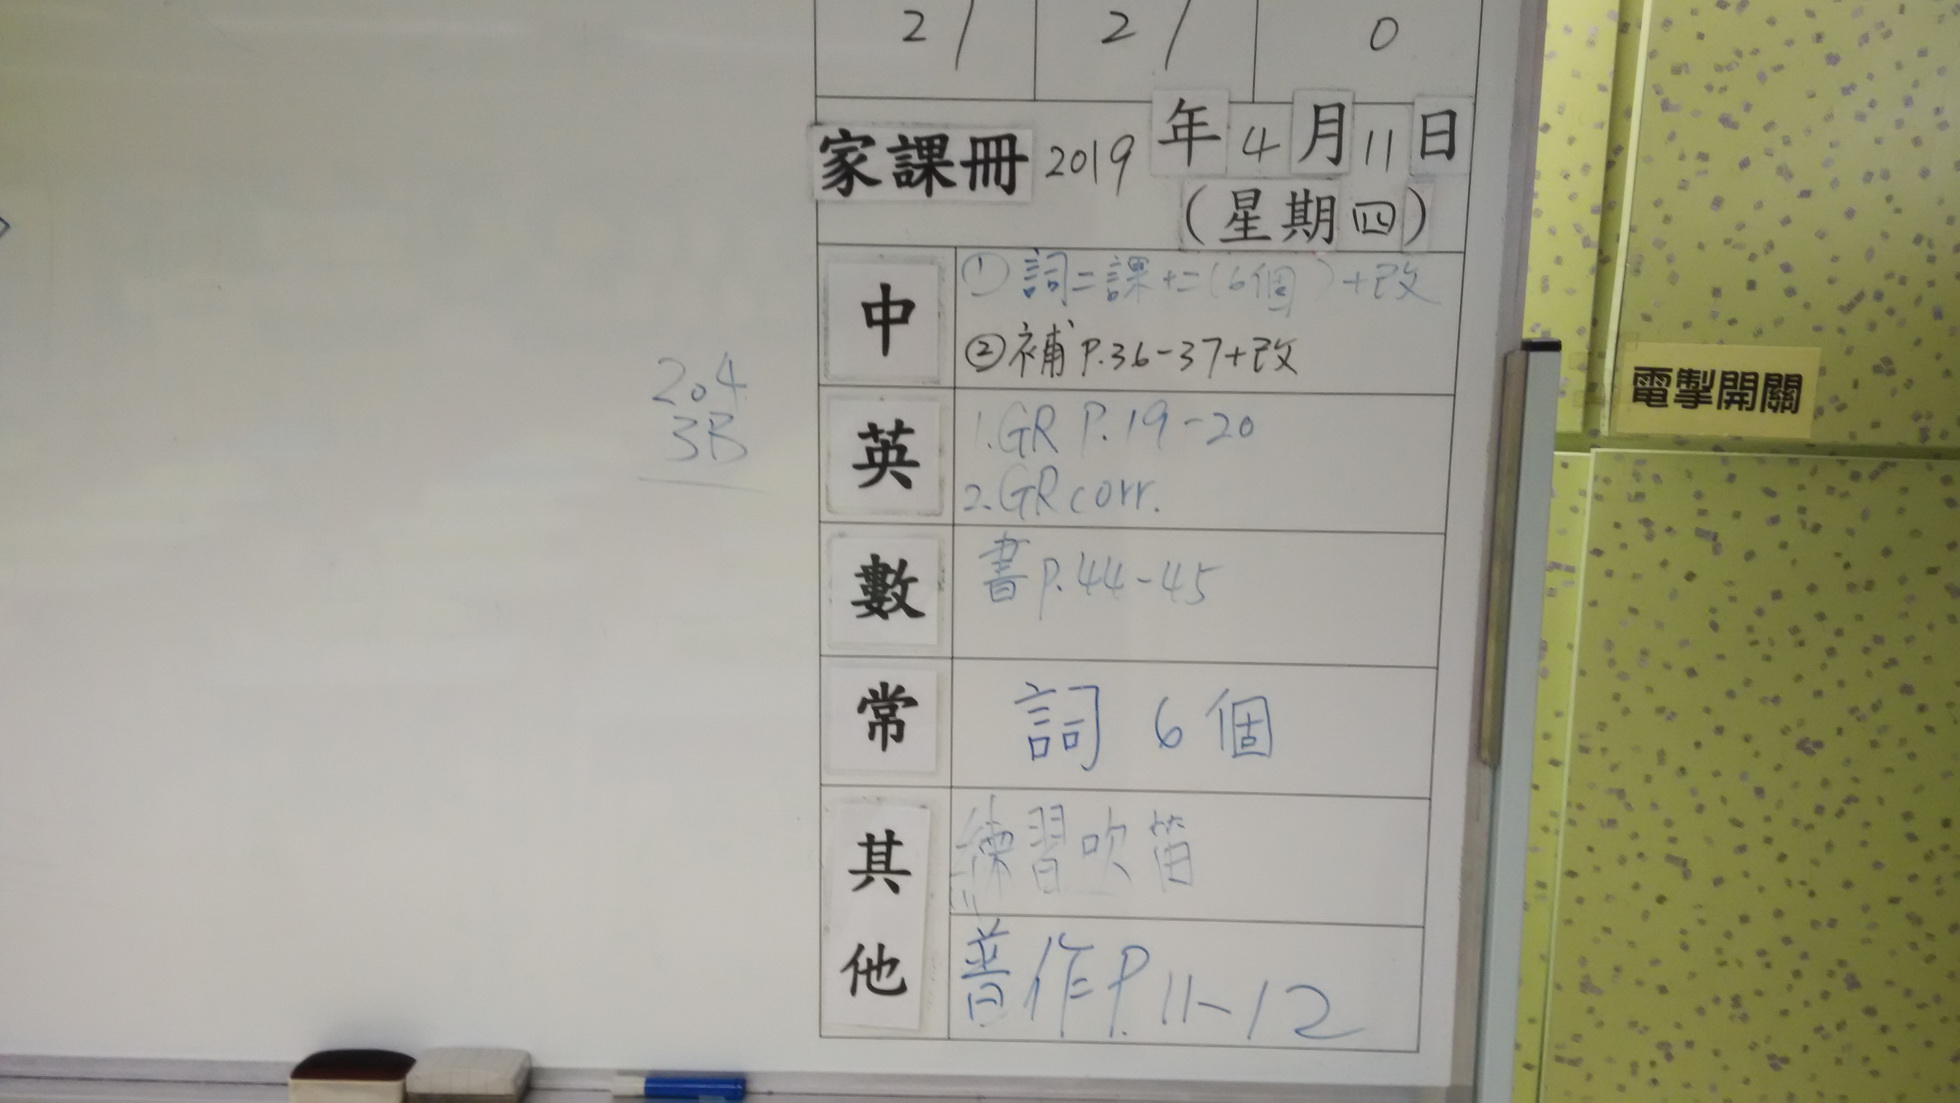 21 21 0
家課冊 2019年4月11日
(星期四)
中
①詞二課十二(6個)+改
②補P.36-37+改
204
3B
英
1.GR P.19-20
2.GR corr.
數
書P.44-45
常
詞 6個
其他
練習吹笛
普作P.11-12
電掣開關